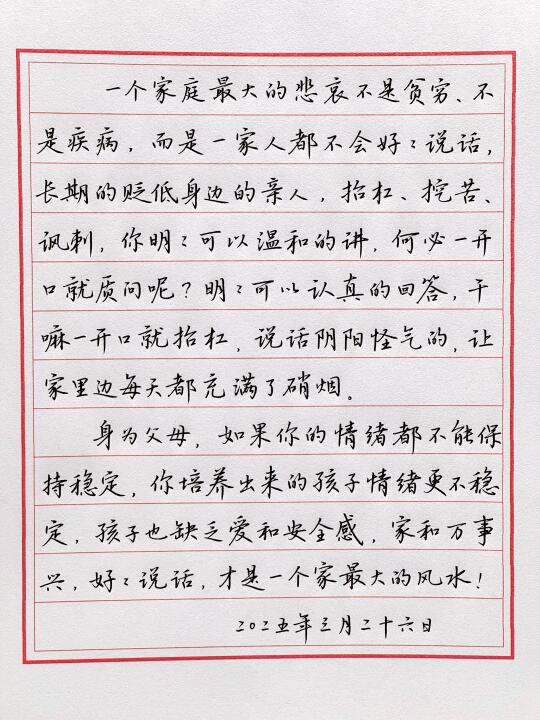 一个家庭最大的悲哀不是贫穷、不
是疾病，而是一家人都不会好〻说话，
长期的贬低身边的亲人，抬杠、挖苦、
讽刺，你明〻可以温和的讲，何必一开
口就质问呢？明〻可以认真的回答，干
嘛一开口就抬杠，说话阴阳怪气的，让
家里边每天都充满了硝烟。
身为父母，如果你的情绪都不能保
持稳定，你培养出来的孩子情绪更不稳
定，孩子也缺乏爱和安全感，家和万事
兴，好〻说话，才是一个家最大的风水！
二〇二五年三月二十六日